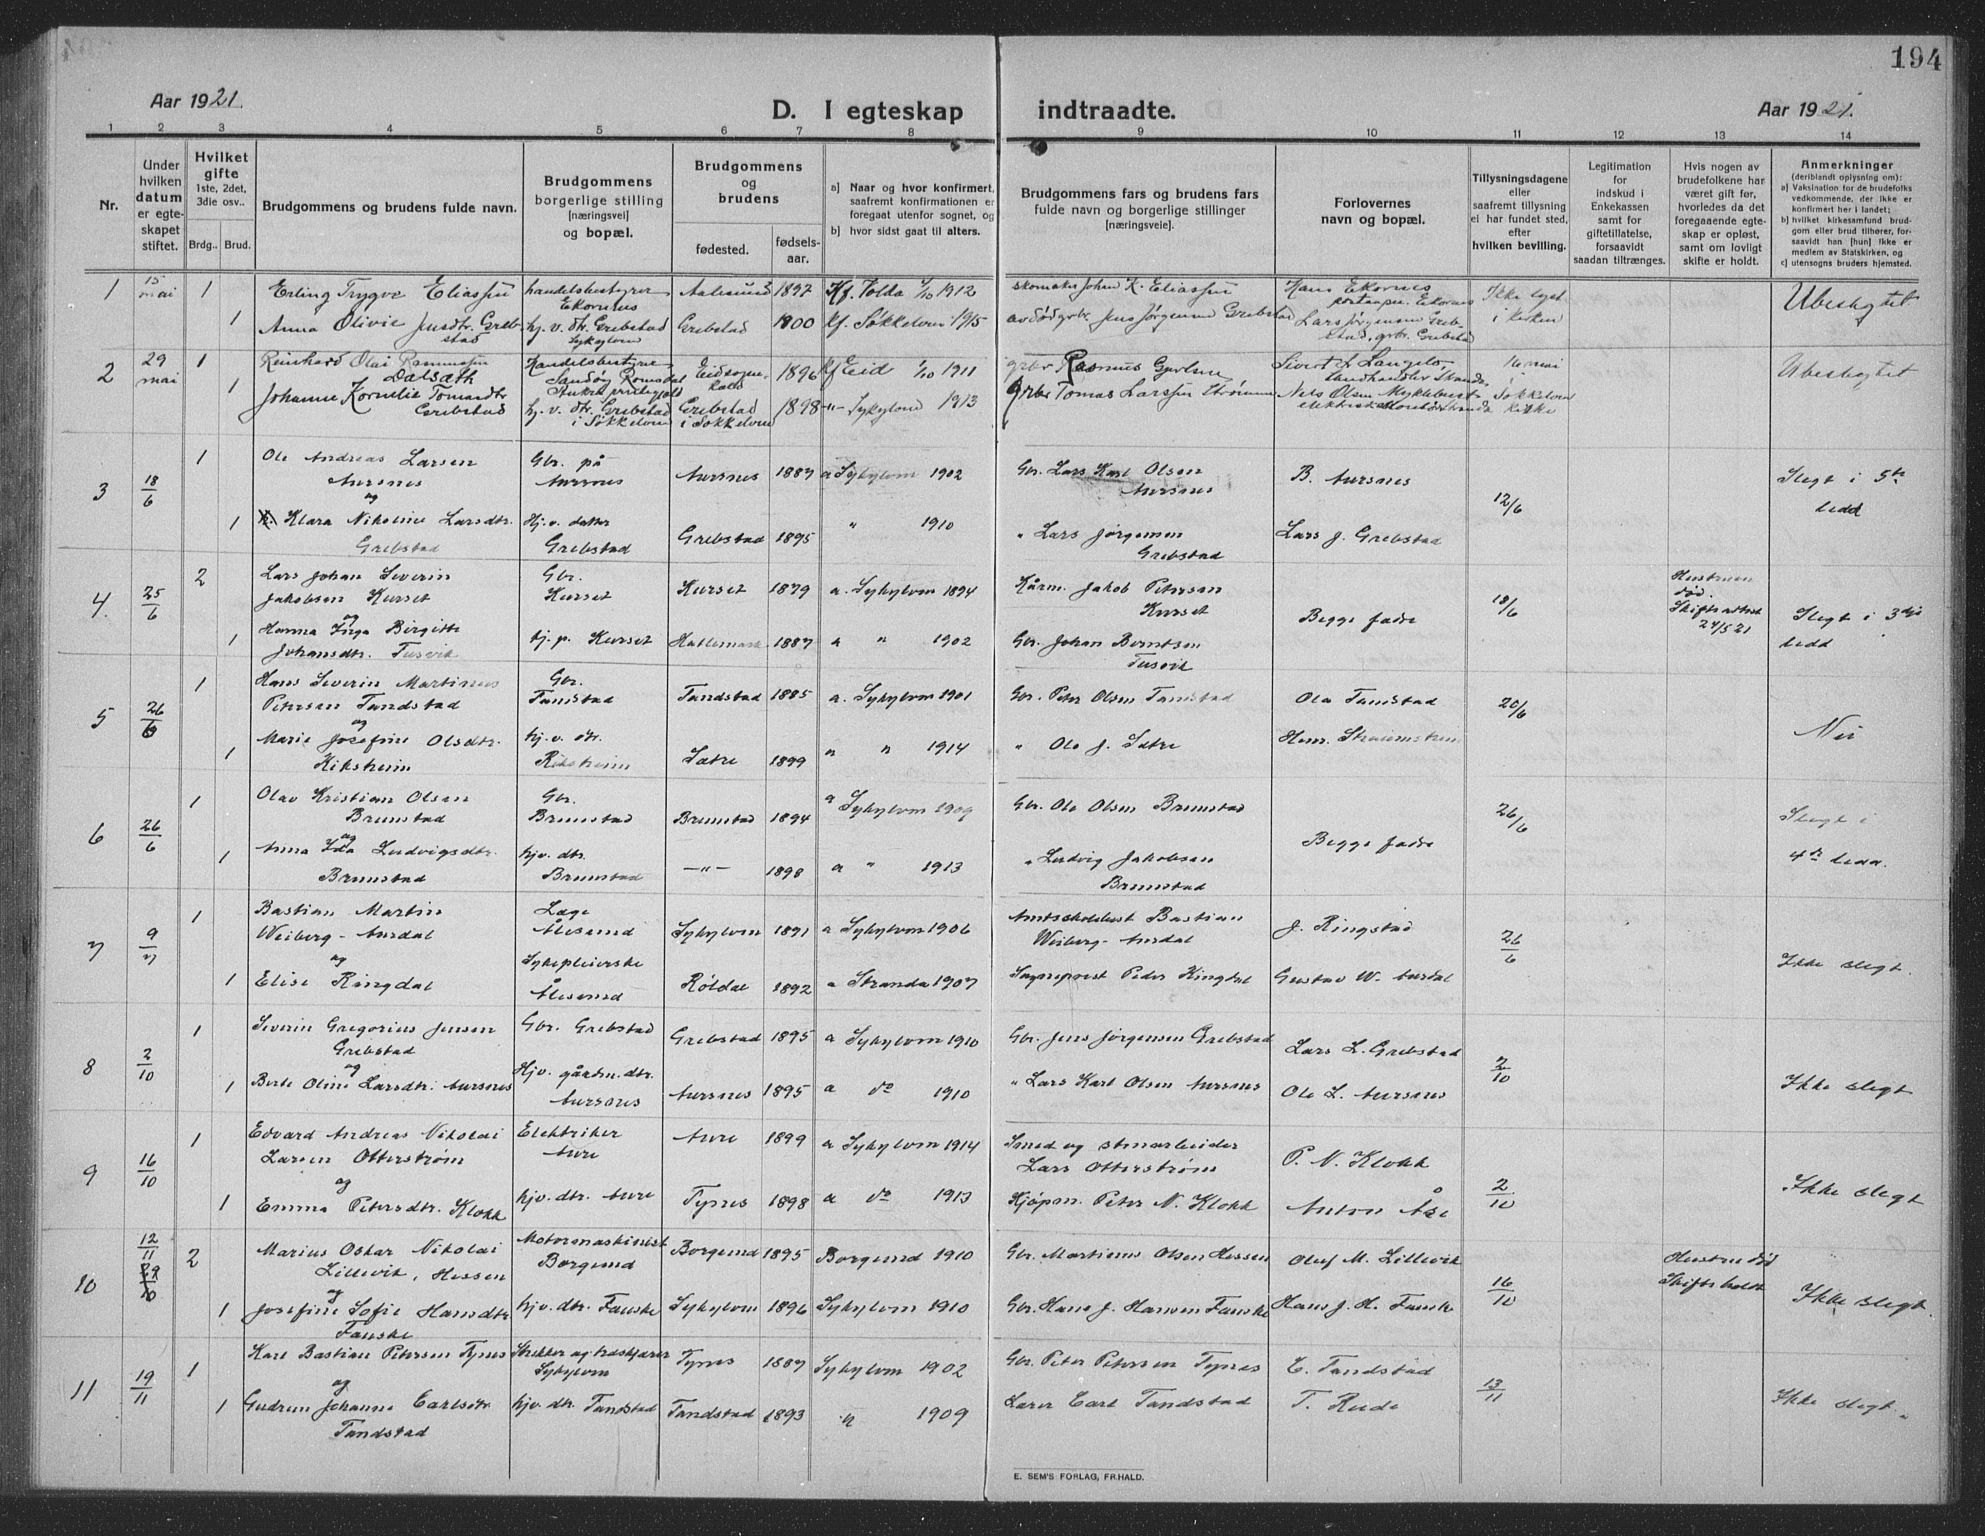 194
Aar 1921.
D. I egteskap indtraadte.
Aar 1921.
1 2 3 4 5 6 7 8 9 10 11 12 13 14
Nr.
Under hvilken datum er egteskapet stiftet.
Hvilket gifte 1ste, 2det, 3die osv..
Brdg.. Brud.
Brudgommens og brudens fulde navn.
Brudgommens borgerlige stilling [næringsvei] og bopæl.
Brudgommens og brudens
fødested. fødsels-aar.
a) Naar og hvor konfirmert, saafremt konfirmationen er foregaat utenfor sognet, og
b) hvor sidst gaat til alters.
Brudgommens fars og brudens fars fulde navn og borgerlige stillinger [næringsveie].
Forlovernes navn og bopæl.
Tillysningsdagene eller saafremt tillysning ei har fundet sted, efter hvilken bevilling.
Legitimation for indskud i Enkekassen samt for giftetillatelse, forsaavidt saadan tiltrænges.
Hvis nogen av brudefolkene har været gift før, hvorledes da det foregaaende egteskap er opløst, samt om lovligt skifte er holdt.
Anmerkninger (deriblandt oplysning om):
a) Vaksination for de brudefolks vedkommende, der ikke er konfirmert her i landet;
b) hvilket kirkesamfund brudgom eller brud tilhører, forsaavidt han [hun] ikke er medlem av Statskirken, og
c) utensogns bruders hjemsted.
1 15 mai 1 Erling Trygve Eliassen handelsbestyrer Ekornes Aalesund 1897 Kf. Volda 1/10 1912 skomaker Johan K. Eliassen Hans Ekornes Ekornes Ikke lyst i kirken Ubeslegtet
1 Anna Olivie Jensdtr. Grebstad hj. v. dtr. Grebstad Sykylven Grebstad 1800 kf. Søkkelven 1915 avdød grbr. Jens Jørgensen Grebstad Lars Jørgensen Grebstad, grbr. Grebstad
2 29 mai 1 Reinhard Olai Rasmussen Dalsæth Handelsbestyrer Sandøy Romsdal 1896 kf Eid 1/10 1911 grbr Rasmus Sivert 16 mai i Søkkelven kirke Ubeslegtet
1 Johanne Kornelie Tomasdtr Grebstad hj. v. dtr. Grebstad i Søkkelven Grebstad i Søkkelven 1898 -"- Sykylven 1913 Grbr Tomas Larssen Strømme Nils Olsen Myklebust
3 18/6 1 Ole Andreas Larsen Aursnes Gbr. på Aursnes Aursnes 1887 a Sykylven 1902 Gbr. Lars Karl Olsen Aursnes B. Aursnes 12/6 Slegt i 5te ledd
og
1 Klara Nikoline Larsdtr. Grebstad Hj. v. datter Grebstad Grebstad 1895 " 1910 " Lars Jørgensen Grebstad Lars J. Grebstad
4. 25/6 2 Lars Johan Severin Jakobsen Kurset Gbr. Kurset Kurset 1879 a. Sykylven 1894 Kårm. Jakob Petersen Kurset Begge fædre 18/6 Hustruen død. Skifteattest 24/5 21 Slegt i 3dje ledd
og
1 Hanna Inga Birgitte Johansdtr. Tusvik hj. p. Kurset 1887 a " 1902 Gbr. Johan Berntsen Tusvik
5 26/6 1 Hans Severin Martinus Petersen Tandstad Gbr. Tandstad Tandstad 1885 a. Sykylven 1901 Gbr. Peter Olsen Tandstad Ola Tandstad 20/6 Nei
og
1 Marie Josefine Olsdtr. Riksheim hj. v. dtr. Riksheim Sætre 1899 " " 1914 " Ole J. Sætre Hans. Straumsheim
6 26/6 1 Olav Kristian Olsen Brunstad Gbr. Brunstad Brunstad 1894 a Sykylven 1909 Gbr. Ole Olsen Brunstad Begge fædre 26/6 Slegt i 4de ledd.
og
1 Anna Ida Ludvigsdtr. Brunstad hjv. dtr. Brunstad -"- 1898 a " 1913 " Ludvig Jakobsen Brunstad
7 9/7 1 Bastian Martin Weiberg-Aurdal Læge Ålesund Sykylven 1891 a Sykylven 1906 Bastian Weiberg-Aurdal J. Ringstad 26/6 Ikke slegt.
og
1 Elise Ringdal Sykepleierske Ålesund Røldal 1892 a Stranda 1907 Sogneprest Peder Ringdal Gustav W. Aurdal
8 2/10 1 Severin Gregorius Jensen Grebstad Gbr. Grebstad Grebstad 1895 a Sykylven 1910 Gbr. Jens Jørgensen Grebstad Lars L. Grebstad 2/10 Ikke slegt
og
1 Berte Oline Larsdtr. Aursnes Hjv. gårdm. dtr. Aursnes Aursnes 1895 a do 1910 " Lars Karl Olsen Aursnes Ole L. Aursnes
9 16/10 1 Edvard Andreas Nikolai Larsen Otterstrøm Elektriker Aure Aure 1899 a Sykylven 1914 Smed og stenarbeider Lars Otterstrøm P. N. Klokk 2/10 Ikke slegt
og
1 Emma Petersdtr. Klokk hjv. dtr. Aure Tynes 1898 a do 1913 Kjøpm. Peter N. Klokk Anton Åse
10 12/11 2 Marius Oskar Nikolai Lillevik, Hessen Motormaskinist Borgund Borgund 1895 Borgund 1910 Gbr. Martinus Olsen Hessen Oluf M. Lillevik 16/10 Hustru død Skifte holdt Ikke slegt.
og
1 Josefine Sofie Hansdtr. Fauske hjv. dtr. Fauske Sykylven 1896 Sykylven 1910 Gbr. Hans J. Hansen Fauske Hans J. H. Fauske
11 19/11 1 Karl Bastian Petersen Tynes Sykylven Tynes 1887 Sykylven 1902 Gbr. Peter Petersen Tynes C. Tandstad 13/11 Ikke slegt.
og
1 Gudrun Johanne Carlsdtr. Tandstad hjv. dtr. Tandstad Tandstad 1893 " 1909 Lærer Carl Tandstad T. Rude
E. SEM'S FORLAG, FR.HALD.